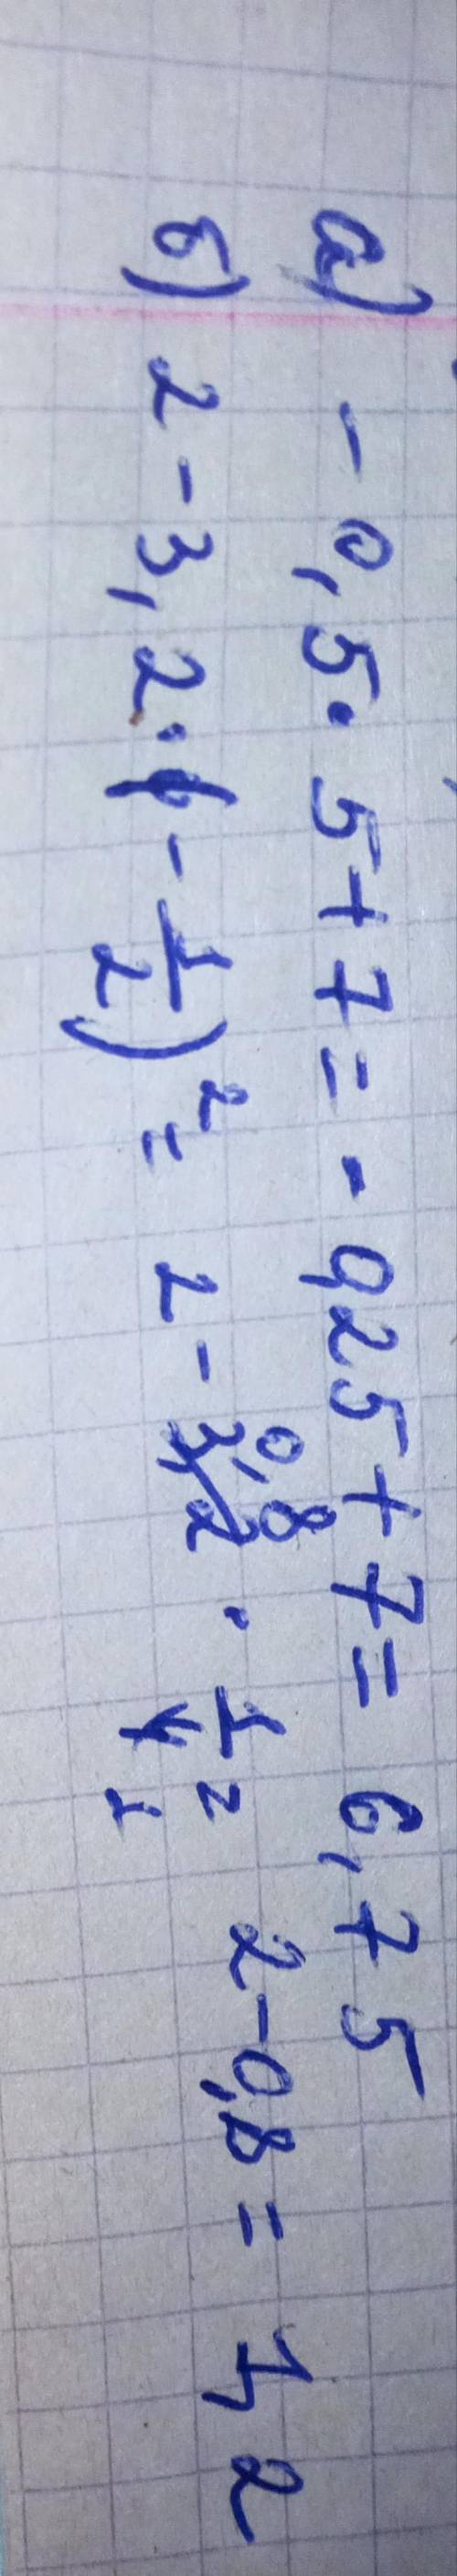 а) - 0,5 · 5 + 7 = - 0,25 + 7 = 6,75
б) 2 - 3,2 · (- 1/2)² = 2 - 3,2 0,8 · 1/4 1 = 2 - 0,8 = 1,2